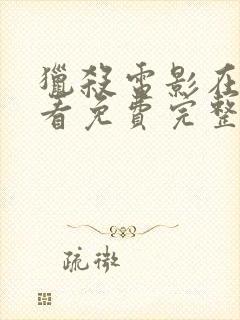 獵殺雷影在
看免費完整
疏微